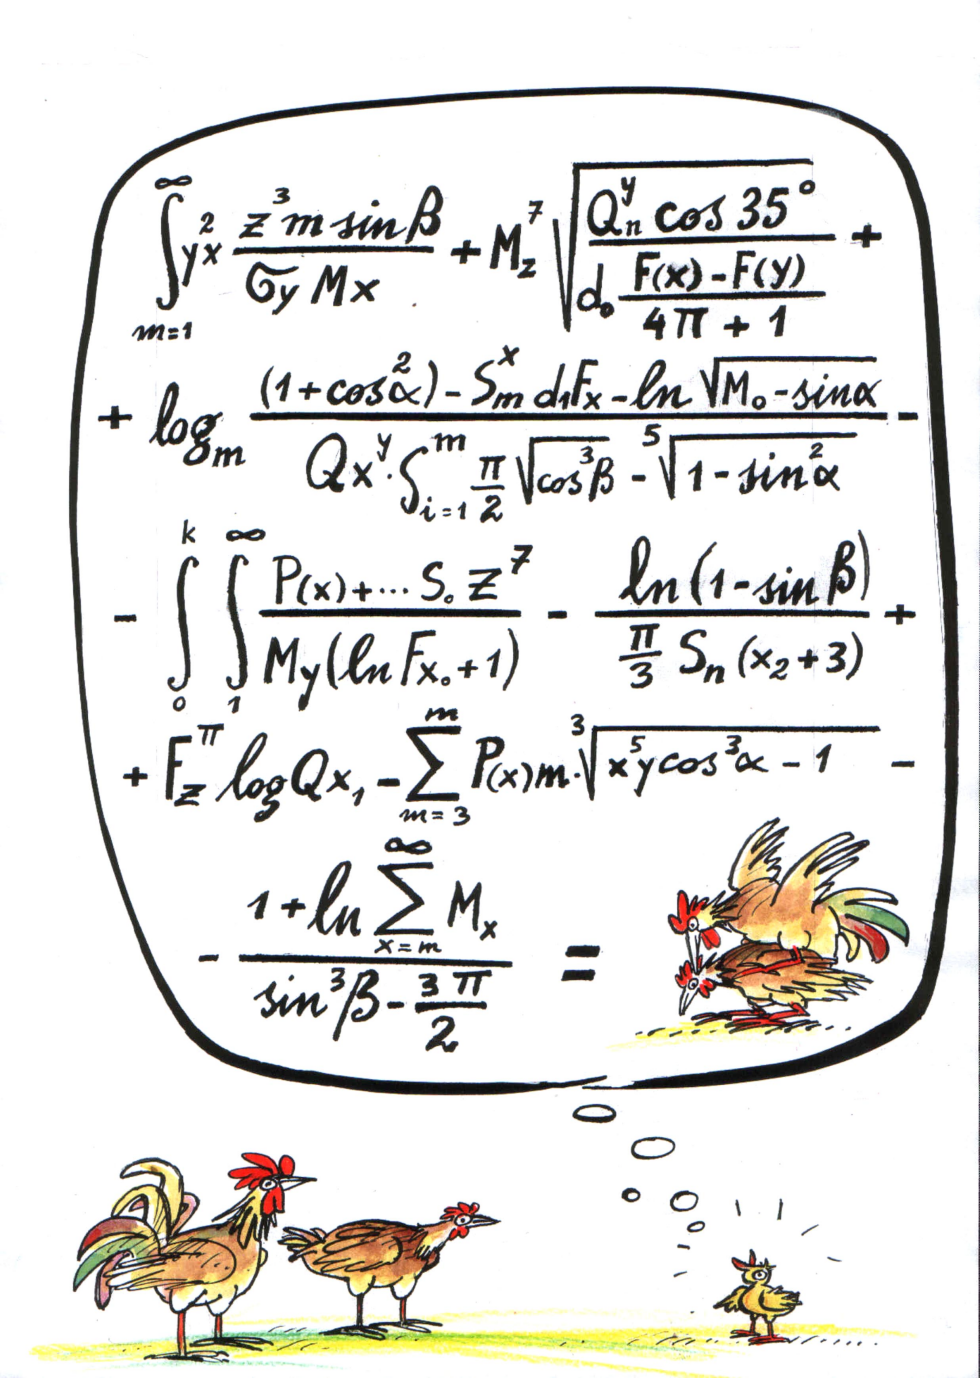 ∫_{m=1}^{∞} y x^2 (z^3 m sin β)/(σ_y M x) + M_z^7 √((Q_n^y cos 35°)/(d_0 (F(x) - F(y))/(4π + 1))) +
+ log_m ((1 + cos^2 α) - S_m^x d_1 F_x - ln √(M_0 - sin α))/(Q x^y · ∫_{i=1}^{m} π/2 √(cos^3 β) - ⁵√(1 - sin^2 α)) -
- ∫_0^k ∫_1^∞ (P(x) + ... S_0 z^7)/(M y (ln F x_0 + 1)) - (ln (1 - sin β))/(π/3 S_n (x_2 + 3)) +
+ F_z^π log Q x_1 - Σ_{m=3}^{m} P(x) m · ³√(x^5 y cos^3 α - 1) -
- (1 + ln Σ_{x=m}^{∞} M_x)/(sin^3 β - 3π/2) =